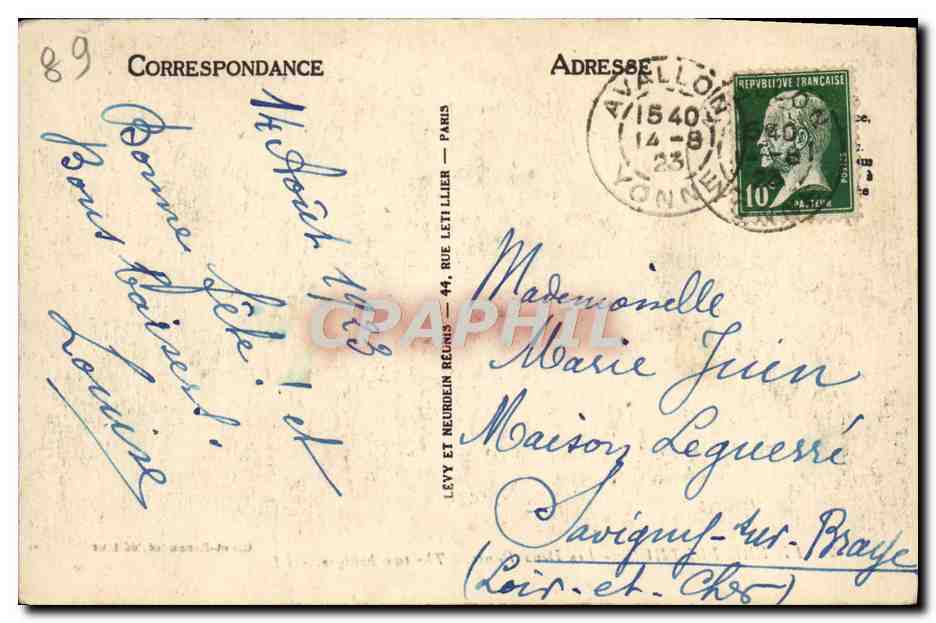 89
CORRESPONDANCE
ADRESSE
14 Août 1923
Bonne fête ! et
Bons baisers !
Louise
LÉVY ET NEURDEIN RÉUNIS — 44, RUE LETELLIER — PARIS
AVALLON
15 40
14 - 8
23
YONNE
REPVBLIQVE FRANÇAISE
POSTES
10c
PASTEVR
Mademoiselle
Marie Juen
Maison Leguerré
Savigny-sur-Braye
(Loir-et-Cher)
CPAPHIL